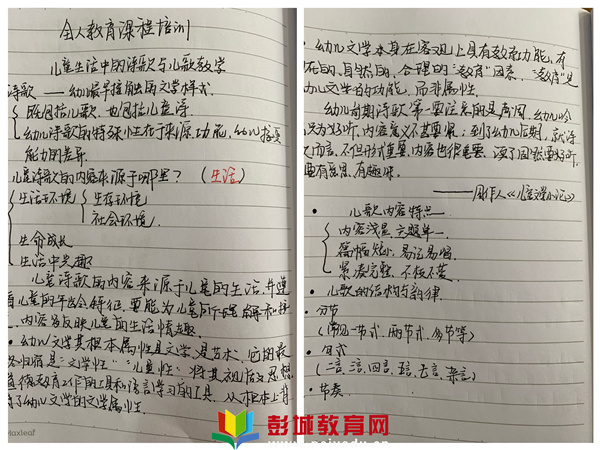 全人教育课程培训
儿童生活中的诗歌与儿歌教学
诗歌——幼儿最早接触的文学样式.
既包括儿歌.也包括儿童诗.
幼儿诗歌的特殊性在于来源.功能,幼儿接受
能力的差异.
儿童诗歌的内容来源于哪里?(生活)
生活环境
生存环境
社会环境.
生命成长
生活中发趣
儿童诗歌的内容来源于儿童的生活.并遵
儿童的年龄特征,要能为儿童所
内容多反映儿童前生活情趣.
幼儿文学其根本属性是文学.是艺术.它的最
终归宿是"文学性""儿童性".将其视品
教育工作的工具和语言学习的工具.从根本上背
了幼儿文学的文学属性.
Maxleaf
幼儿文学本身在客观上具有教育功能,有
在的.自然的.合理的"教育"因素."教育"是
幼儿文学的功能.而非属性.
幼儿前期诗歌第一要注意的是声调.幼儿吟
只为好听,内容意义不甚要紧.到了幼儿后期,就诗
文而言.不但形式重要.内容也很重要.读了固然要好听.
要有意思.有趣味.
——周作人《儿童》
儿歌内容特点.
内容浅显,主题单一.
篇幅短小.易记易唱.
儿歌的结构与韵律.
分节
(常见一节式,两节式,多节等)
句式
(二言,三言,四言,五言,七言,杂言)
节奏.
彭城教育网